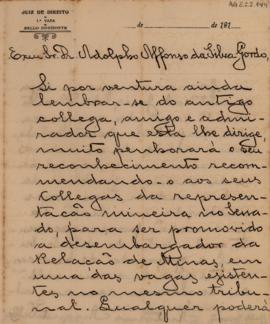 JUIZ DE DIREITO
DA
1.ª VARA
DE
BELLO HORIZONTE
de de 191
Exmo Sr. Dr. Adolpho Affonso da Silva Gordo,
Si por ventura ainda
lembrar-se do antigo
collega, amigo e admi-
rador que esta lhe dirige,
muito penhorará o seu
reconhecimento recom-
mendando-o aos seus
collegas da represen-
tação mineira no Sena-
do, para ser promovido
a desembargador da
Relação de Minas, em
uma das vagas existen-
tes no mesmo tribu-
nal. Qualquer poderá